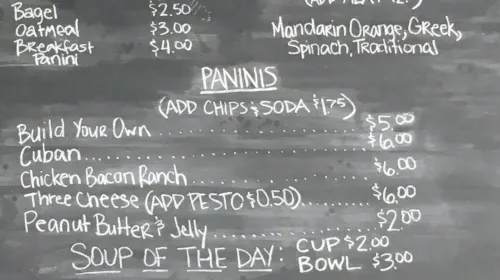 Bagel $2.50
Oatmeal $3.00
Breakfast Panini $4.00
Mandarin Orange, Greek,
Spinach, Traditional
PANINIS
(ADD CHIPS & SODA $1.75)
Build Your Own $5.00
Cuban $6.00
Chicken Bacon Ranch $6.00
Three Cheese (ADD PESTO $0.50) $6.00
Peanut Butter & Jelly $2.00
SOUP OF THE DAY: CUP $2.00
BOWL $3.00